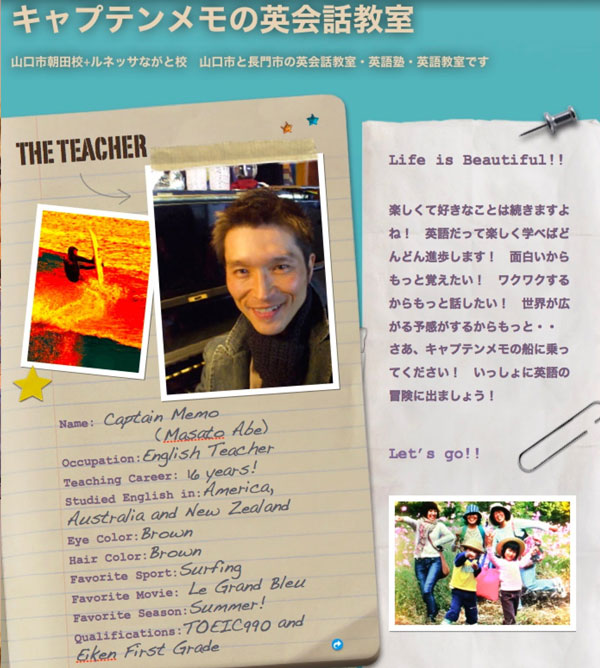 キャプテンメモの英会話教室
山口市朝田校+ルネッサながと校　山口市と長門市の英会話教室・英語塾・英語教室です
THE TEACHER
Name: Captain Memo
(Masato Abe)
Occupation: English Teacher
Teaching Career: 16 years!
Studied English in: America,
Australia and New Zealand
Eye Color: Brown
Hair Color: Brown
Favorite Sport: Surfing
Favorite Movie: Le Grand Bleu
Favorite Season: Summer!
Qualifications: TOEIC990 and
Eiken First Grade
Life is Beautiful!!
楽しくて好きなことは続きますよ
ね！　英語だって楽しく学べばど
んどん進歩します！　面白いから
もっと覚えたい！　ワクワクする
からもっと話したい！　世界が広
がる予感がするからもっと・・
さあ、キャプテンメモの船に乗っ
てください！　いっしょに英語の
冒険に出ましょう！
Let's go!!